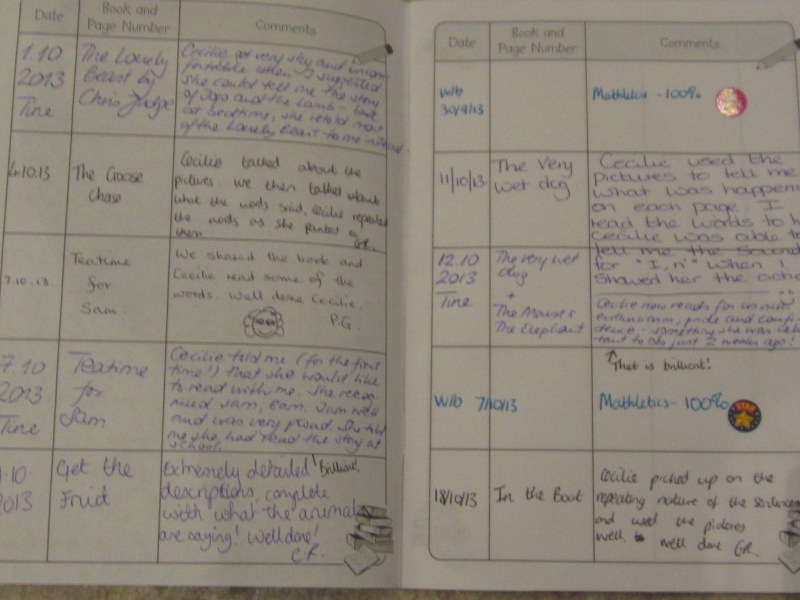 Date
Book and
Page Number
Comments
1.10
2013
Tine
The Lovely
Beast by
Chris Judge
Cecilie got very shy and uncom
fortable when I suggested
she could tell me the story
of Jojo and the Lamb -
at bedtime, she retold most
of the Lovely Beast to me instead
4.10.13
The Goose
Chase
Cecilie talked about the
pictures. We then talked about
what the words said. Cecilie repeated
the words as she pointed to
them. GR.
7.10.13
Teatime
for
Sam.
We shared the book and
Cecilie read some of the
words. Well done Cecilie.
P.G.
7.10
2013
Tine
Teatime
for
Sam
Cecilie told me (for the first
time!) that she would like
to read with me. She recog
nised Sam, Bam, Jam well
and was very proud. She told
me she had read the story at
school.
.10.
2013
Get the
Fruit
Extremely detailed Brilliant!
descriptions, complete
with what the animals
are saying! Well done!
C.R.
Date
Book and
Page Number
Comments
W/b
30/9/13
Mathletics - 100%
11/10/13
The Very
wet dog
Cecilie used the
pictures to tell me
what was happen
on each page. I
read the words to h
Cecilie was able to
tell me the sounds
for "I, n" when I
showed her the actio
12.10
2013
Tine
The very wet
dog
+
The Mouse &
The Elephant
Cecilie now reads for us with
enthusiasm, pride and confi
dence - something she was reluc
tant to do just 2 weeks ago!
That is brilliant!
W/b 7/10/13
Mathletics - 100%
STAR
18/10/13
In the Boat
Cecilie picked up on the
repeating nature of the sentences
and used the pictures
well. Well done GR.